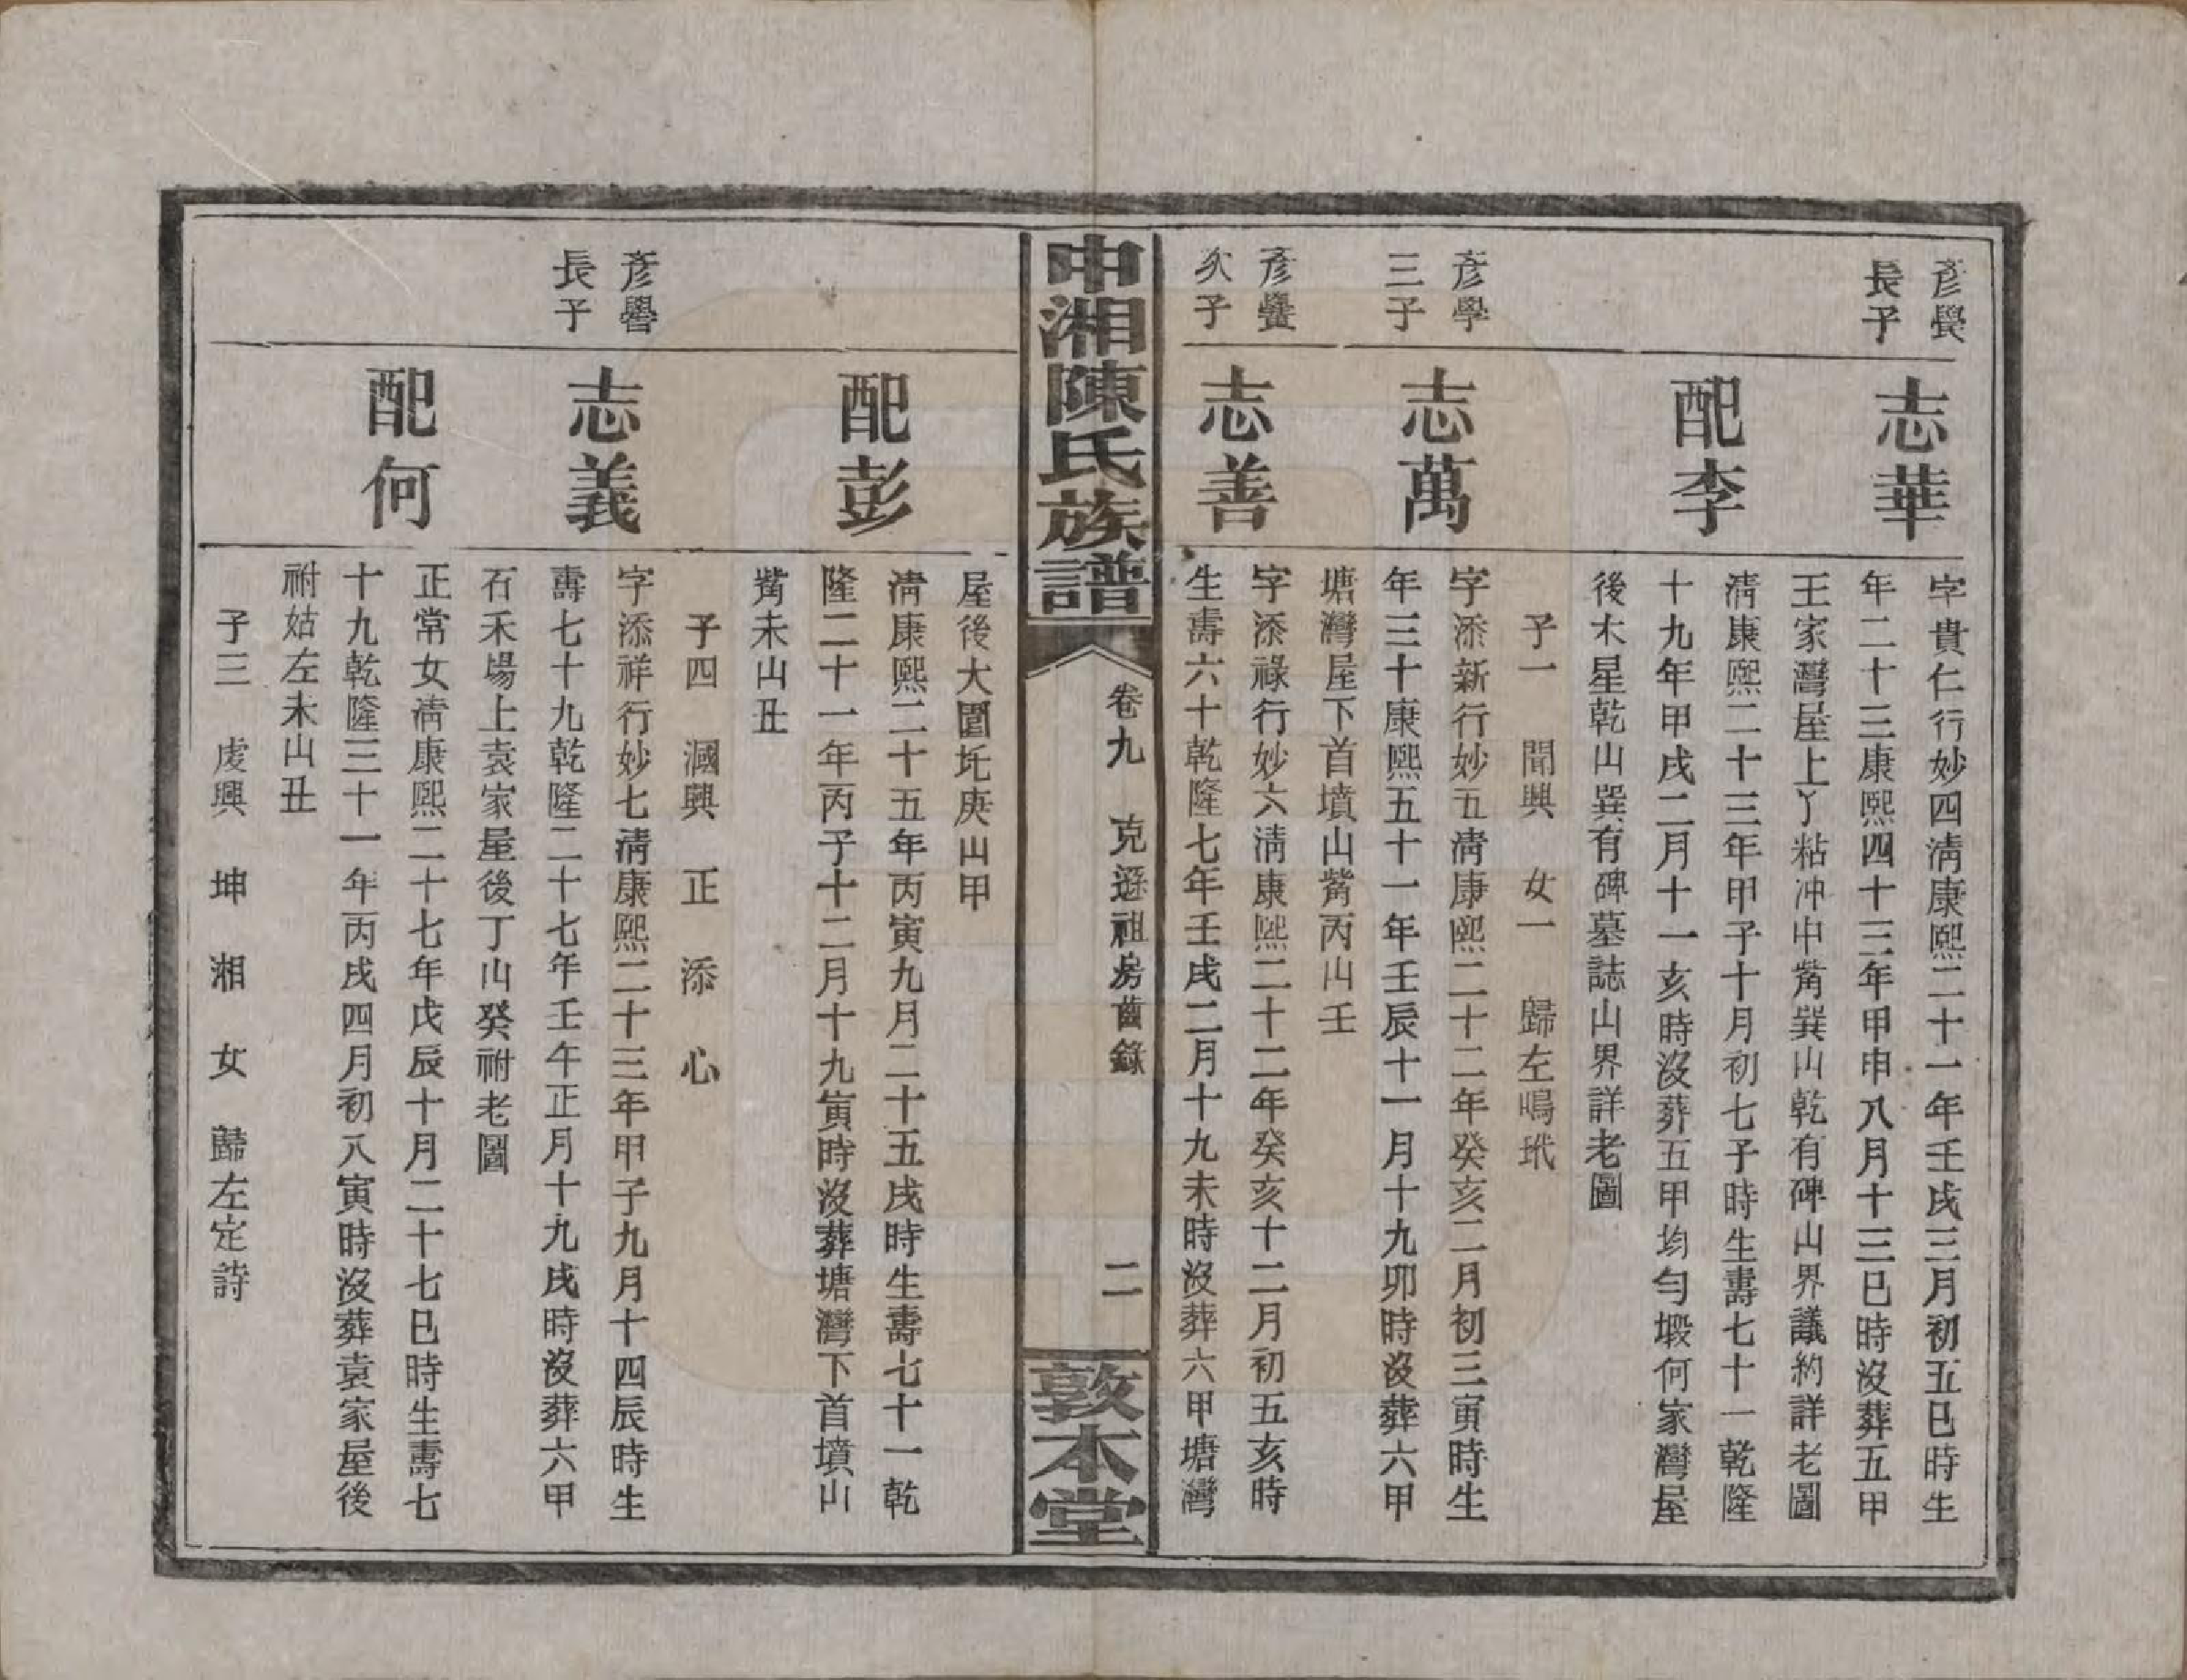 彥
長子
志華
字貴仁行妙四淸康熙二十一年壬戌三月初五巳時生
年二十三康熙四十三年甲申八月十三巳時沒葬五甲
王家灣屋上丫粘冲中觜巽山乾有碑山界議約詳老圖
配李
淸康熙二十三年甲子十月初七子時生壽七十一乾隆
十九年甲戌二月十一亥時沒葬五甲均勻塅何家灣屋
後木星乾山巽有碑墓誌山界詳老圖
子一 開興 女一 歸左鳴玳
彥學
三子
志萬
字添新行妙五淸康熙二十二年癸亥二月初三寅時生
年三十康熙五十一年壬辰十一月十九卯時沒葬六甲
塘灣屋下首墳山觜丙山壬
彥
次子
志善
字添祿行妙六淸康熙二十二年癸亥十二月初五亥時
生壽六十乾隆七年壬戌二月十九未時沒葬六甲塘灣
中湘陳氏族譜
卷九 克遜祖房齒錄
二
敦本堂
屋後大圍圫庚山甲
配彭
淸康熙二十五年丙寅九月二十五戌時生壽七十一乾
隆二十一年丙子十二月十九寅時沒葬塘灣下首墳山
觜未山丑
子四 漍興 正 添 心
彥譽
長子
志義
字添祥行妙七淸康熙二十三年甲子九月十四辰時生
壽七十九乾隆二十七年壬午正月十九戌時沒葬六甲
石禾場上袁家屋後丁山癸祔老圖
配何
正常女淸康熙二十七年戊辰十月二十七巳時生壽七
十九乾隆三十一年丙戌四月初八寅時沒葬袁家屋後
祔姑左未山丑
子三 虔興 坤 湘 女 歸左定詩